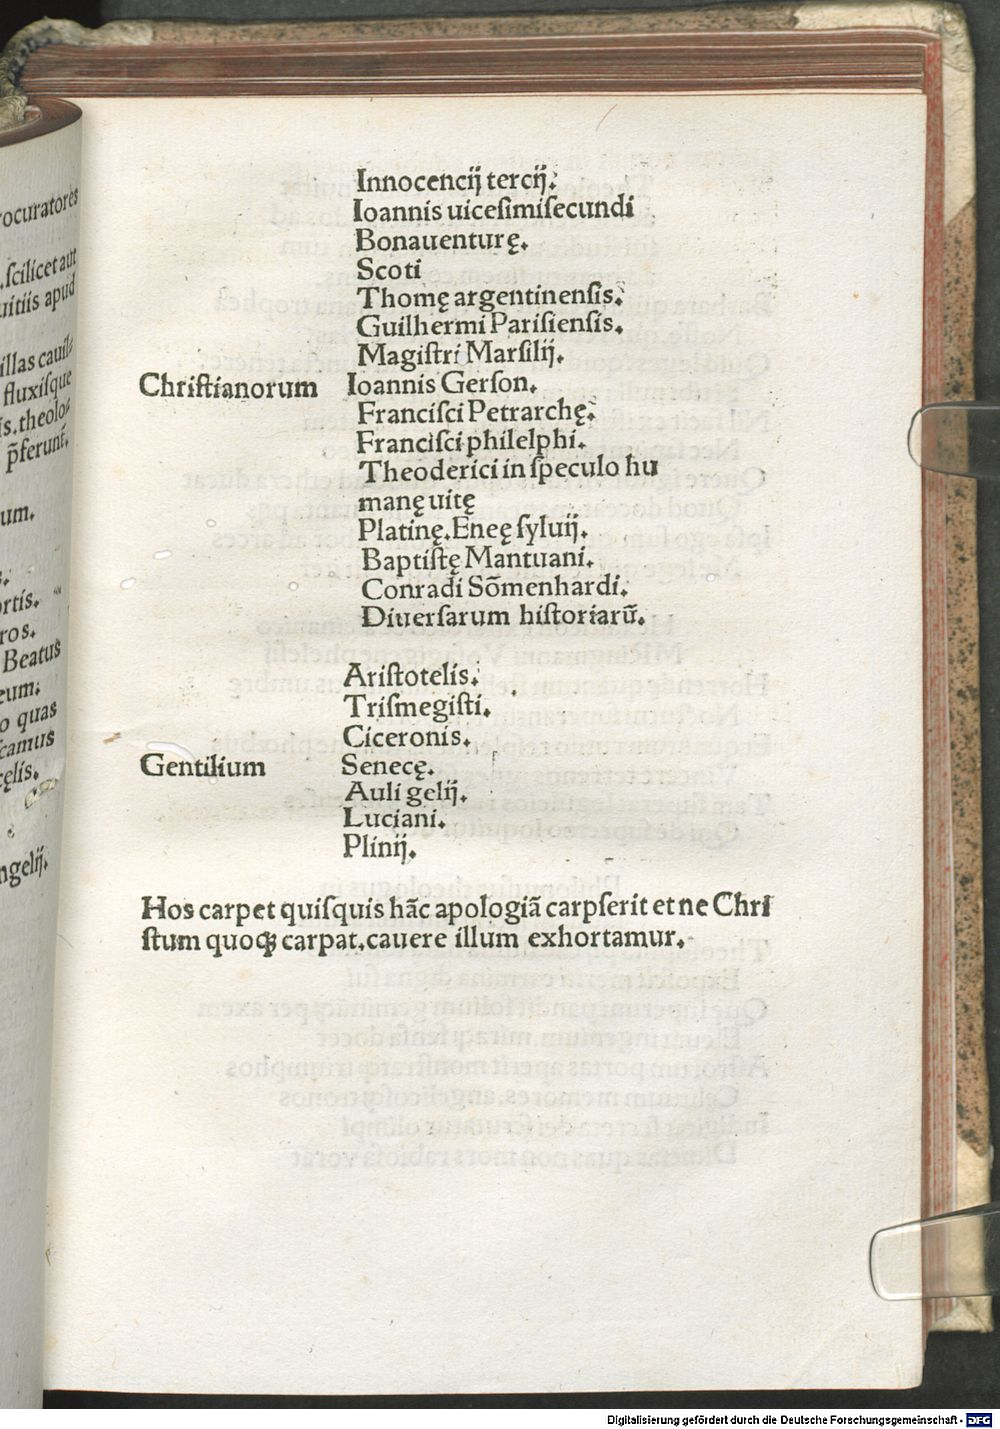 rocuratores
.ſcilicet aut
uitiis apud
illas cauil⸗
fluxiſque
is.theolo⸗
p̄ferunt.
um.
ortis.
ros.
Beatus
eum:
o quas
camus
ęlis.
ngelij.
Innocencij tercij.
Ioannis uiceſimiſecundi
Bonauenturę.
Scoti
Thomę argentinenſis.
Guilhermi Pariſienſis.
Magiſtri Marſilij.
Christianorum Ioannis Gerſon.
Franciſci Petrarchę.
Franciſci philelphi.
Theoderici in ſpeculo hu
manę uitę
Platinę.Eneę ſyluij.
Baptiſtę Mantuani.
Conradi Sōmenhardi.
Diuerſarum hiſtoriarū.
Ariſtotelis.
Triſmegiſti.
Ciceronis.
Gentilium Senecę.
Auli gelij.
Luciani.
Plinij.
Hos carpet quiſquis hāc apologiā carpſerit et ne Chri
ſtum quoqꝫ carpat.cauere illum exhortamur.
Digitalisierung gefördert durch die Deutsche Forschungsgemeinschaft - DFG